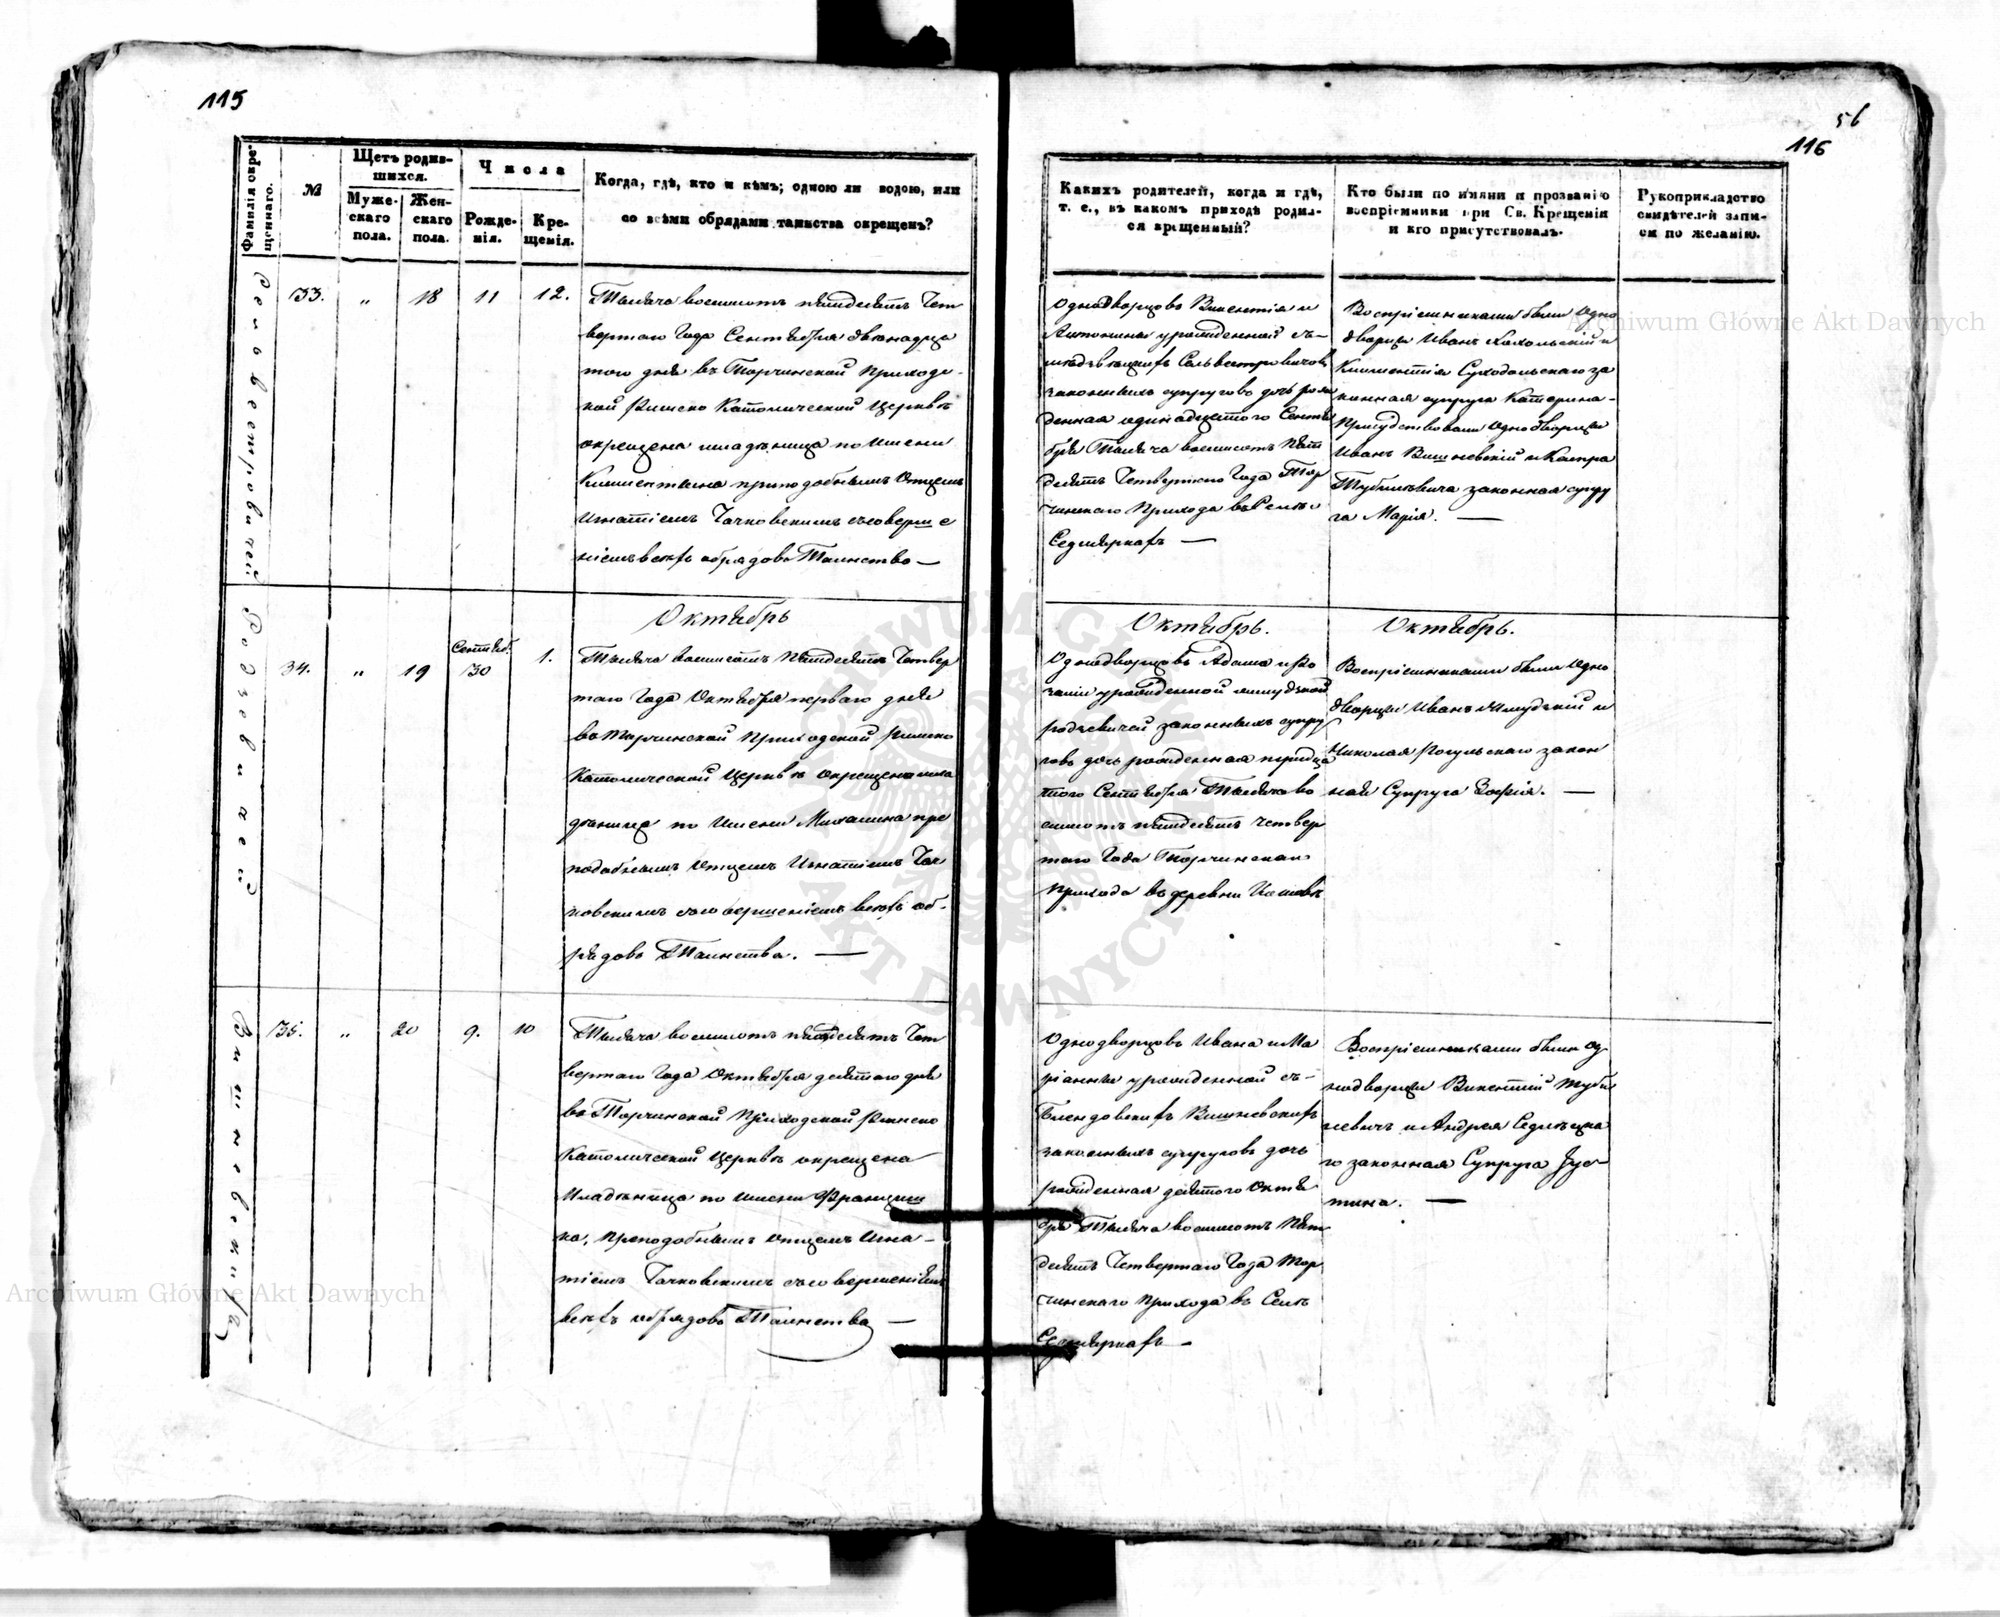 115
Фамилія окре-
щеннаго.
№
Щетъ родив-
шихся.
Муже-
скаго
пола.
Жен-
скаго
пола.
Числа
Рожде-
нія.
Кре-
щенія.
Когда, гдѣ, кто и кѣмъ; одною ли водою, или
со всѣми обрядами таинства окрещенъ?
Сельвестровичей
33. „ 18 11 12.
Тысяча восимсотъ пятдесятъ Чет
вертаго Года Сентября двенадца
того дня въ Торчинской Приход-
ской Римско Католической Церквѣ
окрещена младѣница по Имени
Клементина преподобнымъ Отцемъ
Игнатіемъ Чачковскимъ съсоверше
ніемъ всѣхъ обрядовъ Таинства —
Родзевичей
Октябрь
34. „ 19 Сентяб. 30 1.
Тысяча восимсотъ Пятдесятъ Четвер
таго Года Октября перваго дня
въ Торчинской Приходской Римско
Католической Церквѣ окрещена мла
дѣница по Имени Михалина пре
подобнымъ Отцемъ Игнатіемъ Чач
ковскимъ съсовершеніемъ всѣхъ об-
рядовъ Таинства. —
Вишневскихъ
35. „ 20 9. 10
Тысяча восимсотъ пятдесятъ Чет
вертаго Года Октября десятаго дня
въ Торчинской Приходской Римско
Католической Церквѣ окрещена
Младѣница по имени Францыш
ка, Преподобнымъ Отцемъ Игна-
тіемъ Чачковскимъ съсовершеніемъ
всѣхъ обрядовъ Таинства —
56
116
Какихъ родителей, когда и гдѣ,
т. е., въ какомъ приходѣ родил-
ся крещенный?
Кто были по имяни и прозванію
воспріемники при Св. Крещеніи
и кто присутствовалъ.
Рукоприкладство
свидѣтелей запи-
си по желанію.
Однодворцовъ Викентія и
Антонины урожденной съ-
Сельвестровичовъ
законныхъ супруговъ дочь рож
денная одинадцатого Сентя
бря Тысяча восимсотъ Пят
десятъ Четвертого Года Тор
чинскаго Прихода въ Селѣ
Седмяркахъ —
Воспріемниками были Одно
дворцы Иванъ и
Климентія Суходольскаго за
конная супруга Катерина-
Присудствовали Однодворцы
Иванъ Вишневскій и
законная супру
га Марія. —
Октябрь.
Однодворцовъ Адама и Ро
заліи урожденной
Родзевичей законныхъ супру
говъ дочь рожденная тридца
того Сентября Тысяча во
симсотъ пятдесятъ четвер
таго Года Торчинскаго
Прихода въ деревни
Октябрь.
Воспріемниками были Одно
дворцы Иванъ и
Николая Рогульскаго закон
ная Супруга Зофія. —
Однодворцовъ Ивана и Ма
ріанны урожденной съ-
Блендовскихъ Вишневскихъ
законныхъ супруговъ дочь
рожденная девятого Октя
бря Тысяча восимсотъ Пят
десятъ Четвертаго Года Тор
чинскаго Прихода въ Селѣ
Седмяркахъ —
Воспріемниками были Од
нодворцы Викентій
и Андрея
го законная Супруга Юс-
тина. —
Archiwum Główne Akt Dawnych
Archiwum Główne Akt Dawnych
ARCHIWUM GŁÓWNE AKT DAWNYCH